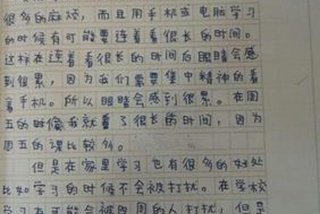 很多的麻烦，而且用手机或电脑学习
的时候有可能要连着看很长的时间。
这样在连着看很长的时间后眼睛会感
到很累，因为我们需要集中精神的看
着手机。所以眼睛会感到很累。在周
五的时候我就看了很长的时间，因为
周五的课比较多。
但是在家里学习也有很多的好处
比如学习的时候不会被打扰。在学校
学习有可能会被周围的人打扰，但是